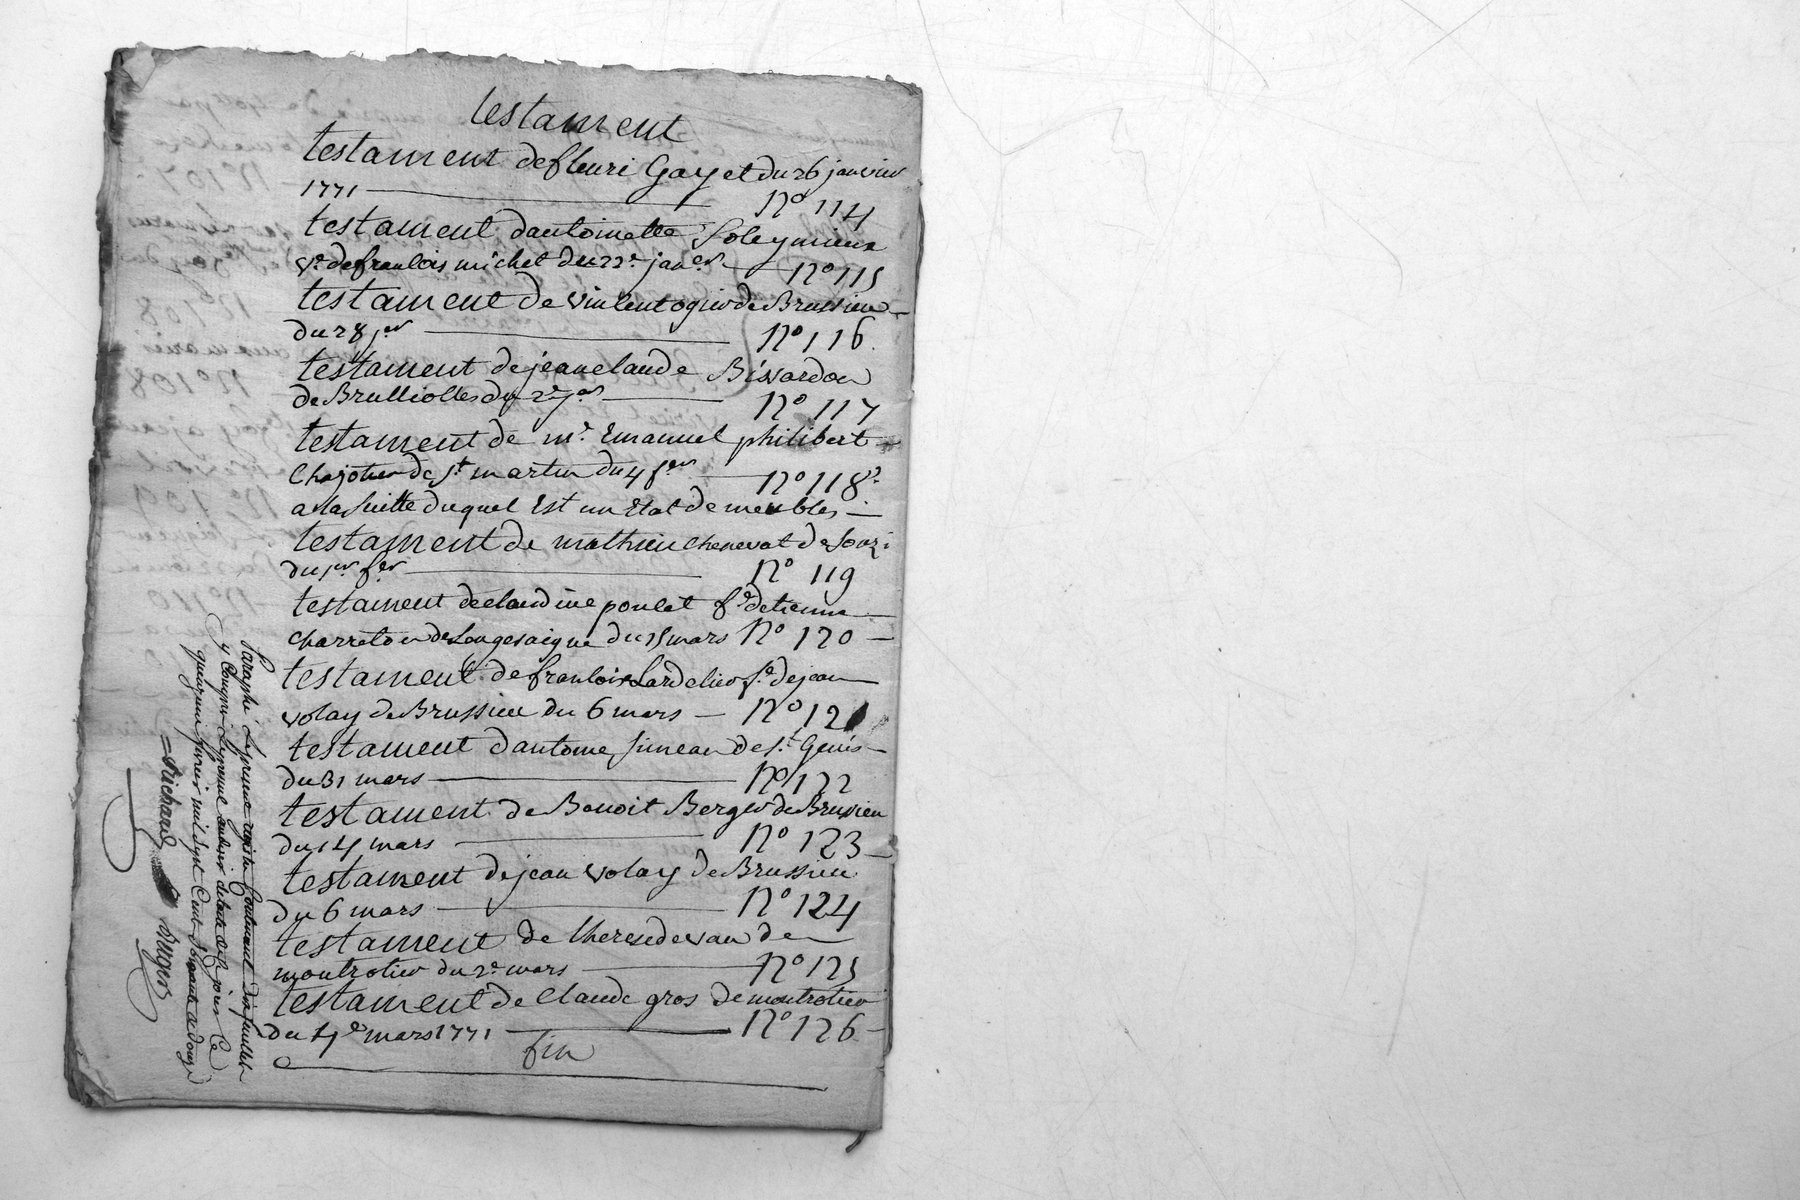 testament
testament de fleuri Gayet du 26 janvier
1771 N° 114
testament dantoinette Soleymieux
ve. de francois michel du 22e janer N° 115
testament de vincent ogier de Brussieu
du 28 jer N° 116.
testament de jean claude Bissardon
de Brulliolles du 2e jer N° 117
testament de mr. Emanuel philibert
Chajotier de St martin du 4 fer N° 118
a la suitte duquel Est un Etat de meubles
testament de mathieu chenevat de Souzi
du 1er fer N° 119
testament de claudine poulat fe detienne
charreton de Longesaigne du 15 mars N° 120
testament de francoise Lardelier fe. de jean
volay de Brussieu du 6 mars N° 121
testament dantoine simean de st. Genis
du 31 mars N° 122
testament de Benoit Berger de Brussieu
du 14 mars N° 123
testament de jean volay de Brussieu
du 6 mars N° 124
testament de therese devau de
montrotier du 2e mars N° 125
testament de Claude gros de montrotier
du 4e mars 1771 N° 126
fin
Paraphé Le present registre Contenant dix feuillets
y Compris Le present au desir de lacte de ce jour Ce
quinze fevrier mil Sept Cent Soixante et douze
Richard